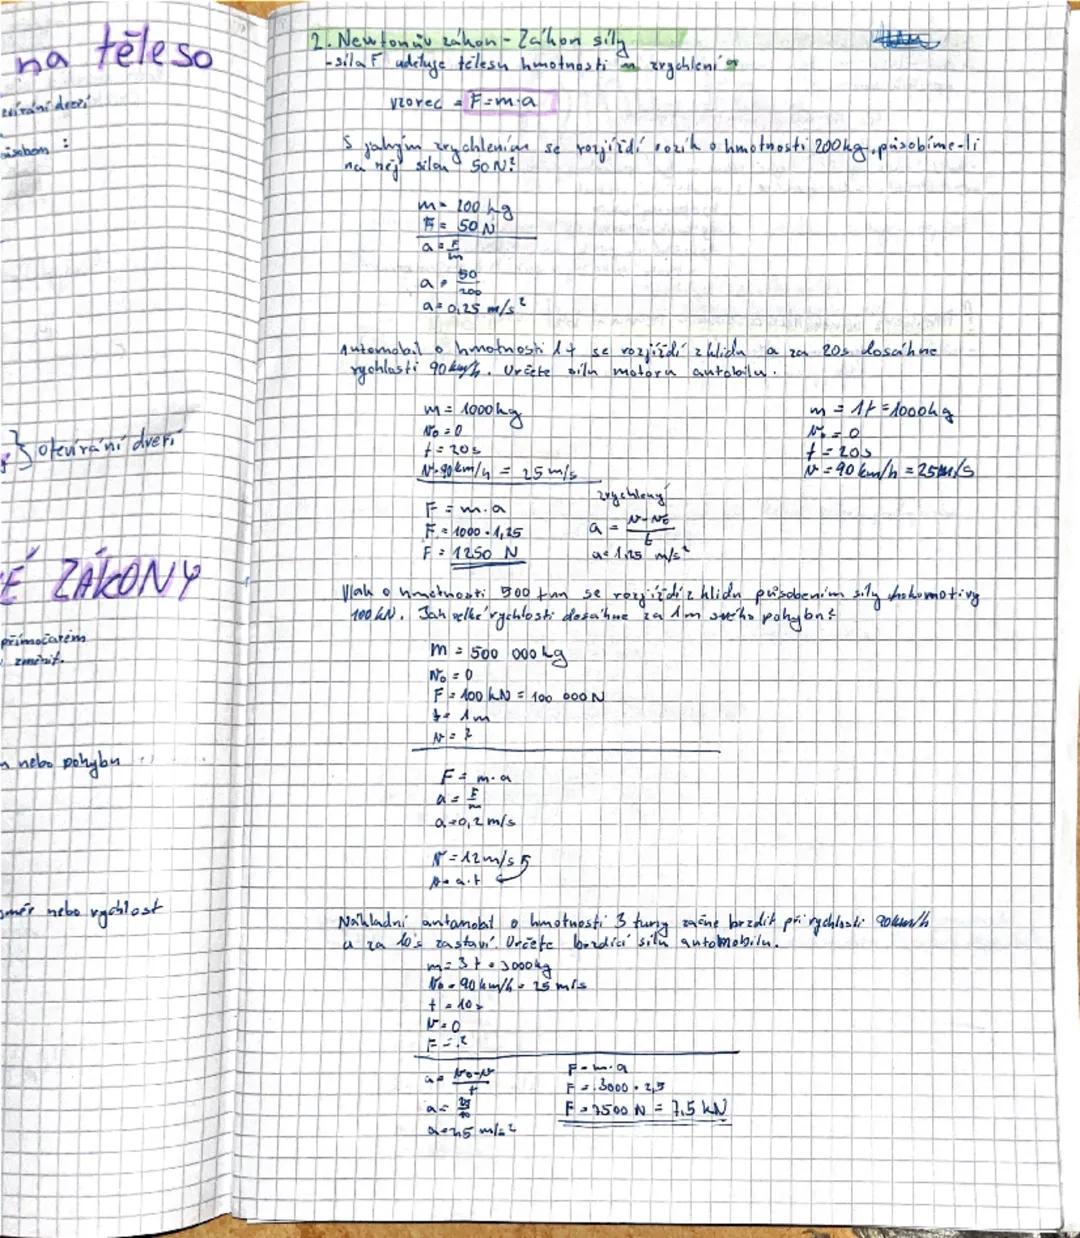 na těleso
otevírání dveří
ZÁKONY
přímočarém
změnit.
nebo pohybu
směr nebo rychlost
2. Newtonův zákon - Zákon síly
- síla F uděluje tělesu hmotnosti m zrychlení a
vzorec = F=m·a
S jakým zrychlením se rozjíždí vozík o hmotnosti 200kg, působíme-li
na něj silou 50N?
m= 200 kg
F= 50 N
a = F/m
a = 50/200
a= 0,25 m/s²
Automobil o hmotnosti 1t se rozjíždí z klidu a za 20s dosáhne
rychlosti 90km/h. Určete sílu motoru
m= 1000kg
v₀=0
t=20s
v=90km/h = 25m/s
m = 1t =1000kg
v₀=0
t=20s
v=90km/h =25m/s
F = m.a
F = 1000 · 1,25
F = 1250 N
zrychlený
a = v-v₀/t
a= 1,25 m/s²
Vlak o hmotnosti 500 tun se rozjíždí z klidu působením síly lokomotivy
100 kN. Jak velké rychlosti dosáhne za 1m svého pohybu?
m = 500 000kg
v₀ = 0
F = 100 kN = 100 000N
t= 1m
v=?
F = m.a
a = F/m
a=0,2m/s
v=12m/s
Nákladní automobil o hmotnosti 3 tuny začne brzdit při rychlosti 90km/h
a za 10s zastaví. Určete brzdící sílu automobilu.
m=3t = 3000kg
v₀=90km/h = 25m/s
t = 10s
v=0
F=?
a= v₀-v/t
a= 25/10
a=2,5 m/s²
F=m.a
F = 3000 · 2,5
F=7500 N = 7,5 kN